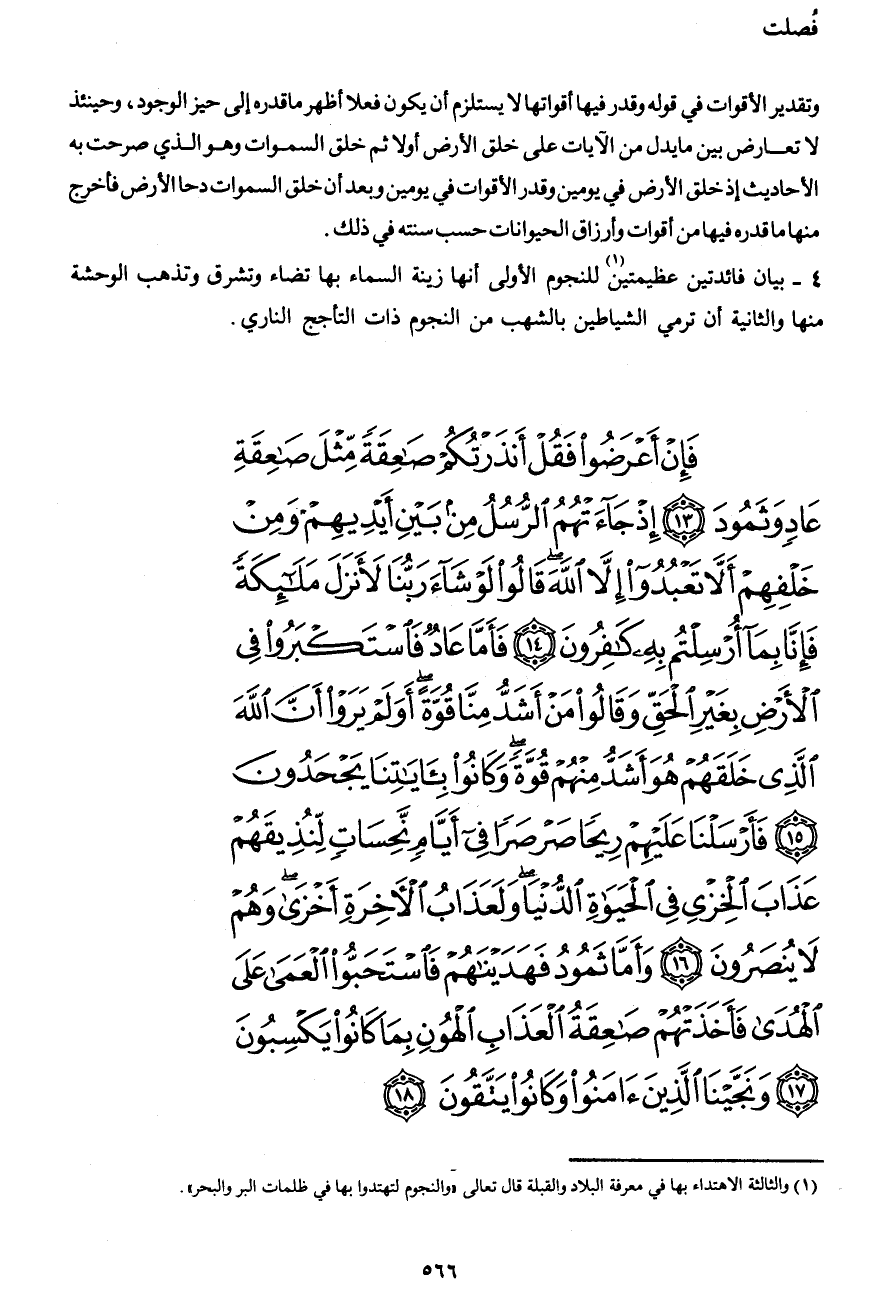 فُصلت
وتقدير الأقوات في قوله وقدر فيها أقواتها لا يستلزم أن يكون فعلا أظهر ماقدره إلى حيز الوجود، وحينئذ
لا تعـــارض بين مايدل من الآيات على خلق الأرض أولا ثم خلق السمـوات وهـو الـذي صرحت به
الأحاديث إذ خلق الأرض في يومين وقدر الأقوات في يومين وبعد أن خلق السموات دحا الأرض فأخرج
منها ما قدره فيها من أقوات وأرزاق الحيوانات حسب سنته في ذلك .
٤ ـ بيان فائدتين عظيمتين(١) للنجوم الأولى أنها زينة السماء بها تضاء وتشرق وتذهب الوحشة
منها والثانية أن ترمي الشياطين بالشهب من النجوم ذات التأجج الناري .
فَإِنْ أَعْرَضُوا۟ فَقُلْ أَنذَرْتُكُمْ صَـٰعِقَةً مِّثْلَ صَـٰعِقَةِ
عَادٍ وَثَمُودَ ١٣ إِذْ جَآءَتْهُمُ ٱلرُّسُلُ مِنۢ بَيْنِ أَيْدِيهِمْ وَمِنْ
خَلْفِهِمْ أَلَّا تَعْبُدُوٓا۟ إِلَّا ٱللَّهَ ۖ قَالُوا۟ لَوْ شَآءَ رَبُّنَا لَأَنزَلَ مَلَـٰٓئِكَةً
فَإِنَّا بِمَآ أُرْسِلْتُم بِهِۦ كَـٰفِرُونَ ١٤ فَأَمَّا عَادٌ فَٱسْتَكْبَرُوا۟ فِى
ٱلْأَرْضِ بِغَيْرِ ٱلْحَقِّ وَقَالُوا۟ مَنْ أَشَدُّ مِنَّا قُوَّةً ۖ أَوَلَمْ يَرَوْا۟ أَنَّ ٱللَّهَ
ٱلَّذِى خَلَقَهُمْ هُوَ أَشَدُّ مِنْهُمْ قُوَّةً ۖ وَكَانُوا۟ بِـَٔايَـٰتِنَا يَجْحَدُونَ
١٥ فَأَرْسَلْنَا عَلَيْهِمْ رِيحًا صَرْصَرًا فِىٓ أَيَّامٍ نَّحِسَاتٍ لِّنُذِيقَهُمْ
عَذَابَ ٱلْخِزْىِ فِى ٱلْحَيَوٰةِ ٱلدُّنْيَا ۖ وَلَعَذَابُ ٱلْـَٔاخِرَةِ أَخْزَىٰ ۖ وَهُمْ
لَا يُنصَرُونَ ١٦ وَأَمَّا ثَمُودُ فَهَدَيْنَـٰهُمْ فَٱسْتَحَبُّوا۟ ٱلْعَمَىٰ عَلَى
ٱلْهُدَىٰ فَأَخَذَتْهُمْ صَـٰعِقَةُ ٱلْعَذَابِ ٱلْهُونِ بِمَا كَانُوا۟ يَكْسِبُونَ
١٧ وَنَجَّيْنَا ٱلَّذِينَ ءَامَنُوا۟ وَكَانُوا۟ يَتَّقُونَ ١٨
(١) والثالثة الاهتداء بها في معرفة البلاد والقبلة قال تعالى «والنجوم لتهتدوا بها في ظلمات البر والبحر» .
٥٦٦